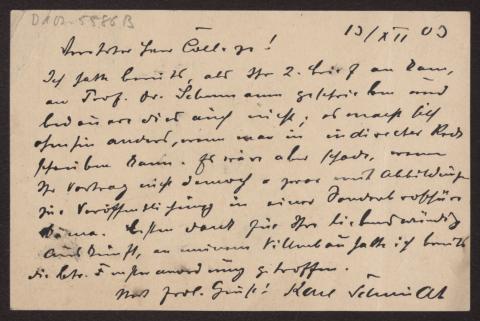 D102.5586 B
13/XII 03
Verehrter Herr College!
Ich hatte bereits, als Ihr 2. Brief an kam,
an Prof. Dr. Schumann geschrieben und
bedauere dies auch nicht; es macht sich
ohnehin anders, wenn man in indirecter Rede
schreiben kann. Es wäre aber schade, wenn
Ihr Vortrag nicht dennoch u zwar mit Abbildungen
zur Veröffentlichung in einer
käme. Besten Dank für Ihre liebenswürdige
Auskunft, an meinem Villenbau hatte ich bereits
die betr. Fensteranordnung getroffen.
Mit Gruß! Karl Schmidt